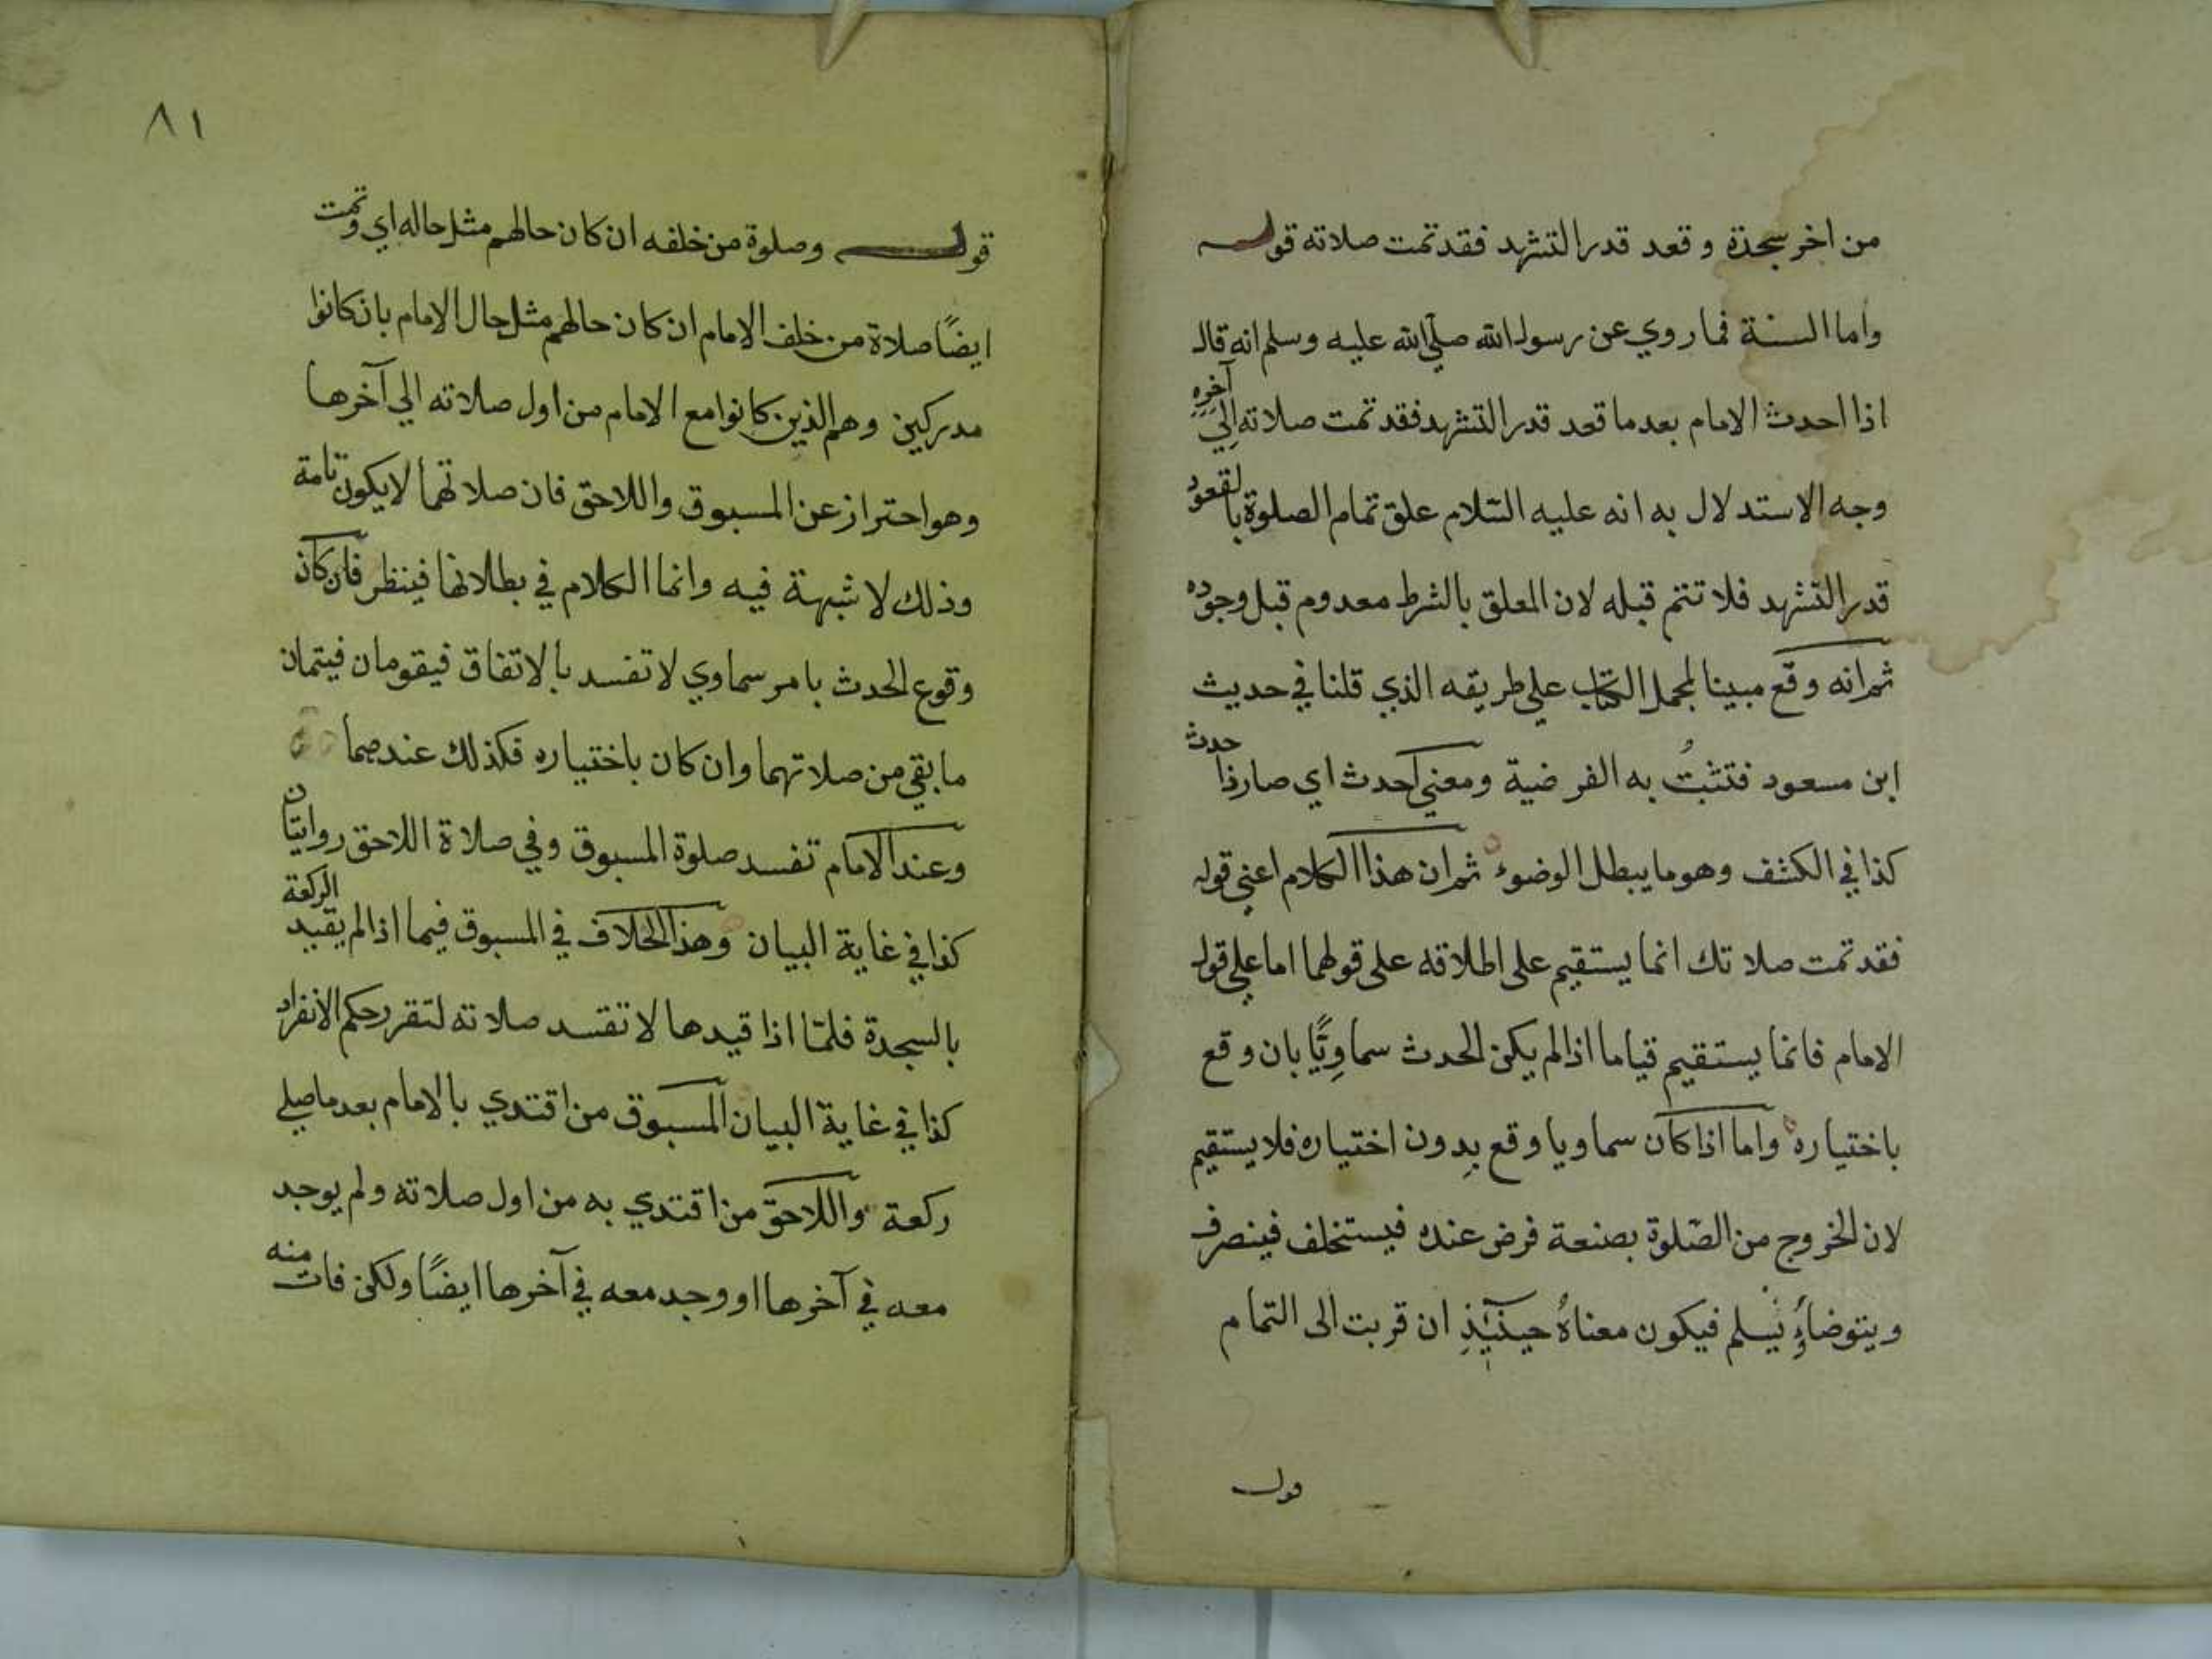 من اخر سجدة وقعد قدر التشهد فقد تمت صلاته قوله
واما السنة فما روي عن رسول الله صلي الله عليه وسلم انه قال
اذا احدث الامام بعد ما قعد قدر التشهد فقد تمت صلاته اِلي آخرِهِ
وجه الاستدلال به انه عليه السّلام علق تمام الصلوة بالقعود
قدر التشهد فلا تتم قبله لان المعلق بالشرط معدوم قبل وجوده
ثم انه وقع مبينا لمجمل الكتاب علي طريقه الذي قلنا في حديث
ابن مسعود فتثبتُ به الفرضية ومعني احدث اي صار ذا حدث
كذا في الكشف وهو ما يبطل الوضوء ثم ان هذا الكلام اعني قوله
فقد تمت صلاتك انما يستقيم على اطلاقه على قولهما اما علي قول
الامام فانما يستقيم قياما اذا لم يكن الحدث سماوِيًّا بان وقع
باختياره واما اذا كان سماويا وقع بِدون اختياره فلا يستقيم
لان الخروج من الصّلوة بصنعة فرض عنده فيستخلف فينصرف
ويتوضاُ ويسلم فيكون معناهُ حينئِذٍ ان قربت الى التمام
قوله
٨١
قوله وصلوة من خلفه ان كان حالهم مثل حاله اي وتمت
ايضًا صلاة من خلف الامام ان كان حالهم مثل حال الامام بان كانوا
مدركين وهم الذين كانوا مع الامام من اول صلاته الي آخرها
وهو احتراز عن المسبوق واللاحق فان صلاتهما لا يكون تامة
وذلك لا شبهة فيه وانما الكلام في بطلانها فينظر فان كان
وقوع الحدث بامر سماوي لا تفسد بالاتفاق فيقومان فيتمان
ما بقي من صلاتهما وان كان باختياره فكذلك عندهما
وعند الامام تفسد صلوة المسبوق وفي صلاة اللاحق روايتان
كذا في غاية البيان وهذا الخلاف في المسبوق فيما اذا لم يقيد الركعة
بالسجدة فلمّا اذا قيدها لا تفسد صلاته لتقرر حكم الانفراد
كذا في غاية البيان المسبوق من اقتدي بالامام بعد ما صلي
ركعة واللاحق من اقتدي به من اول صلاته ولم يوجد
معه في آخرها او وجد معه في آخرها ايضًا ولكن فات منه